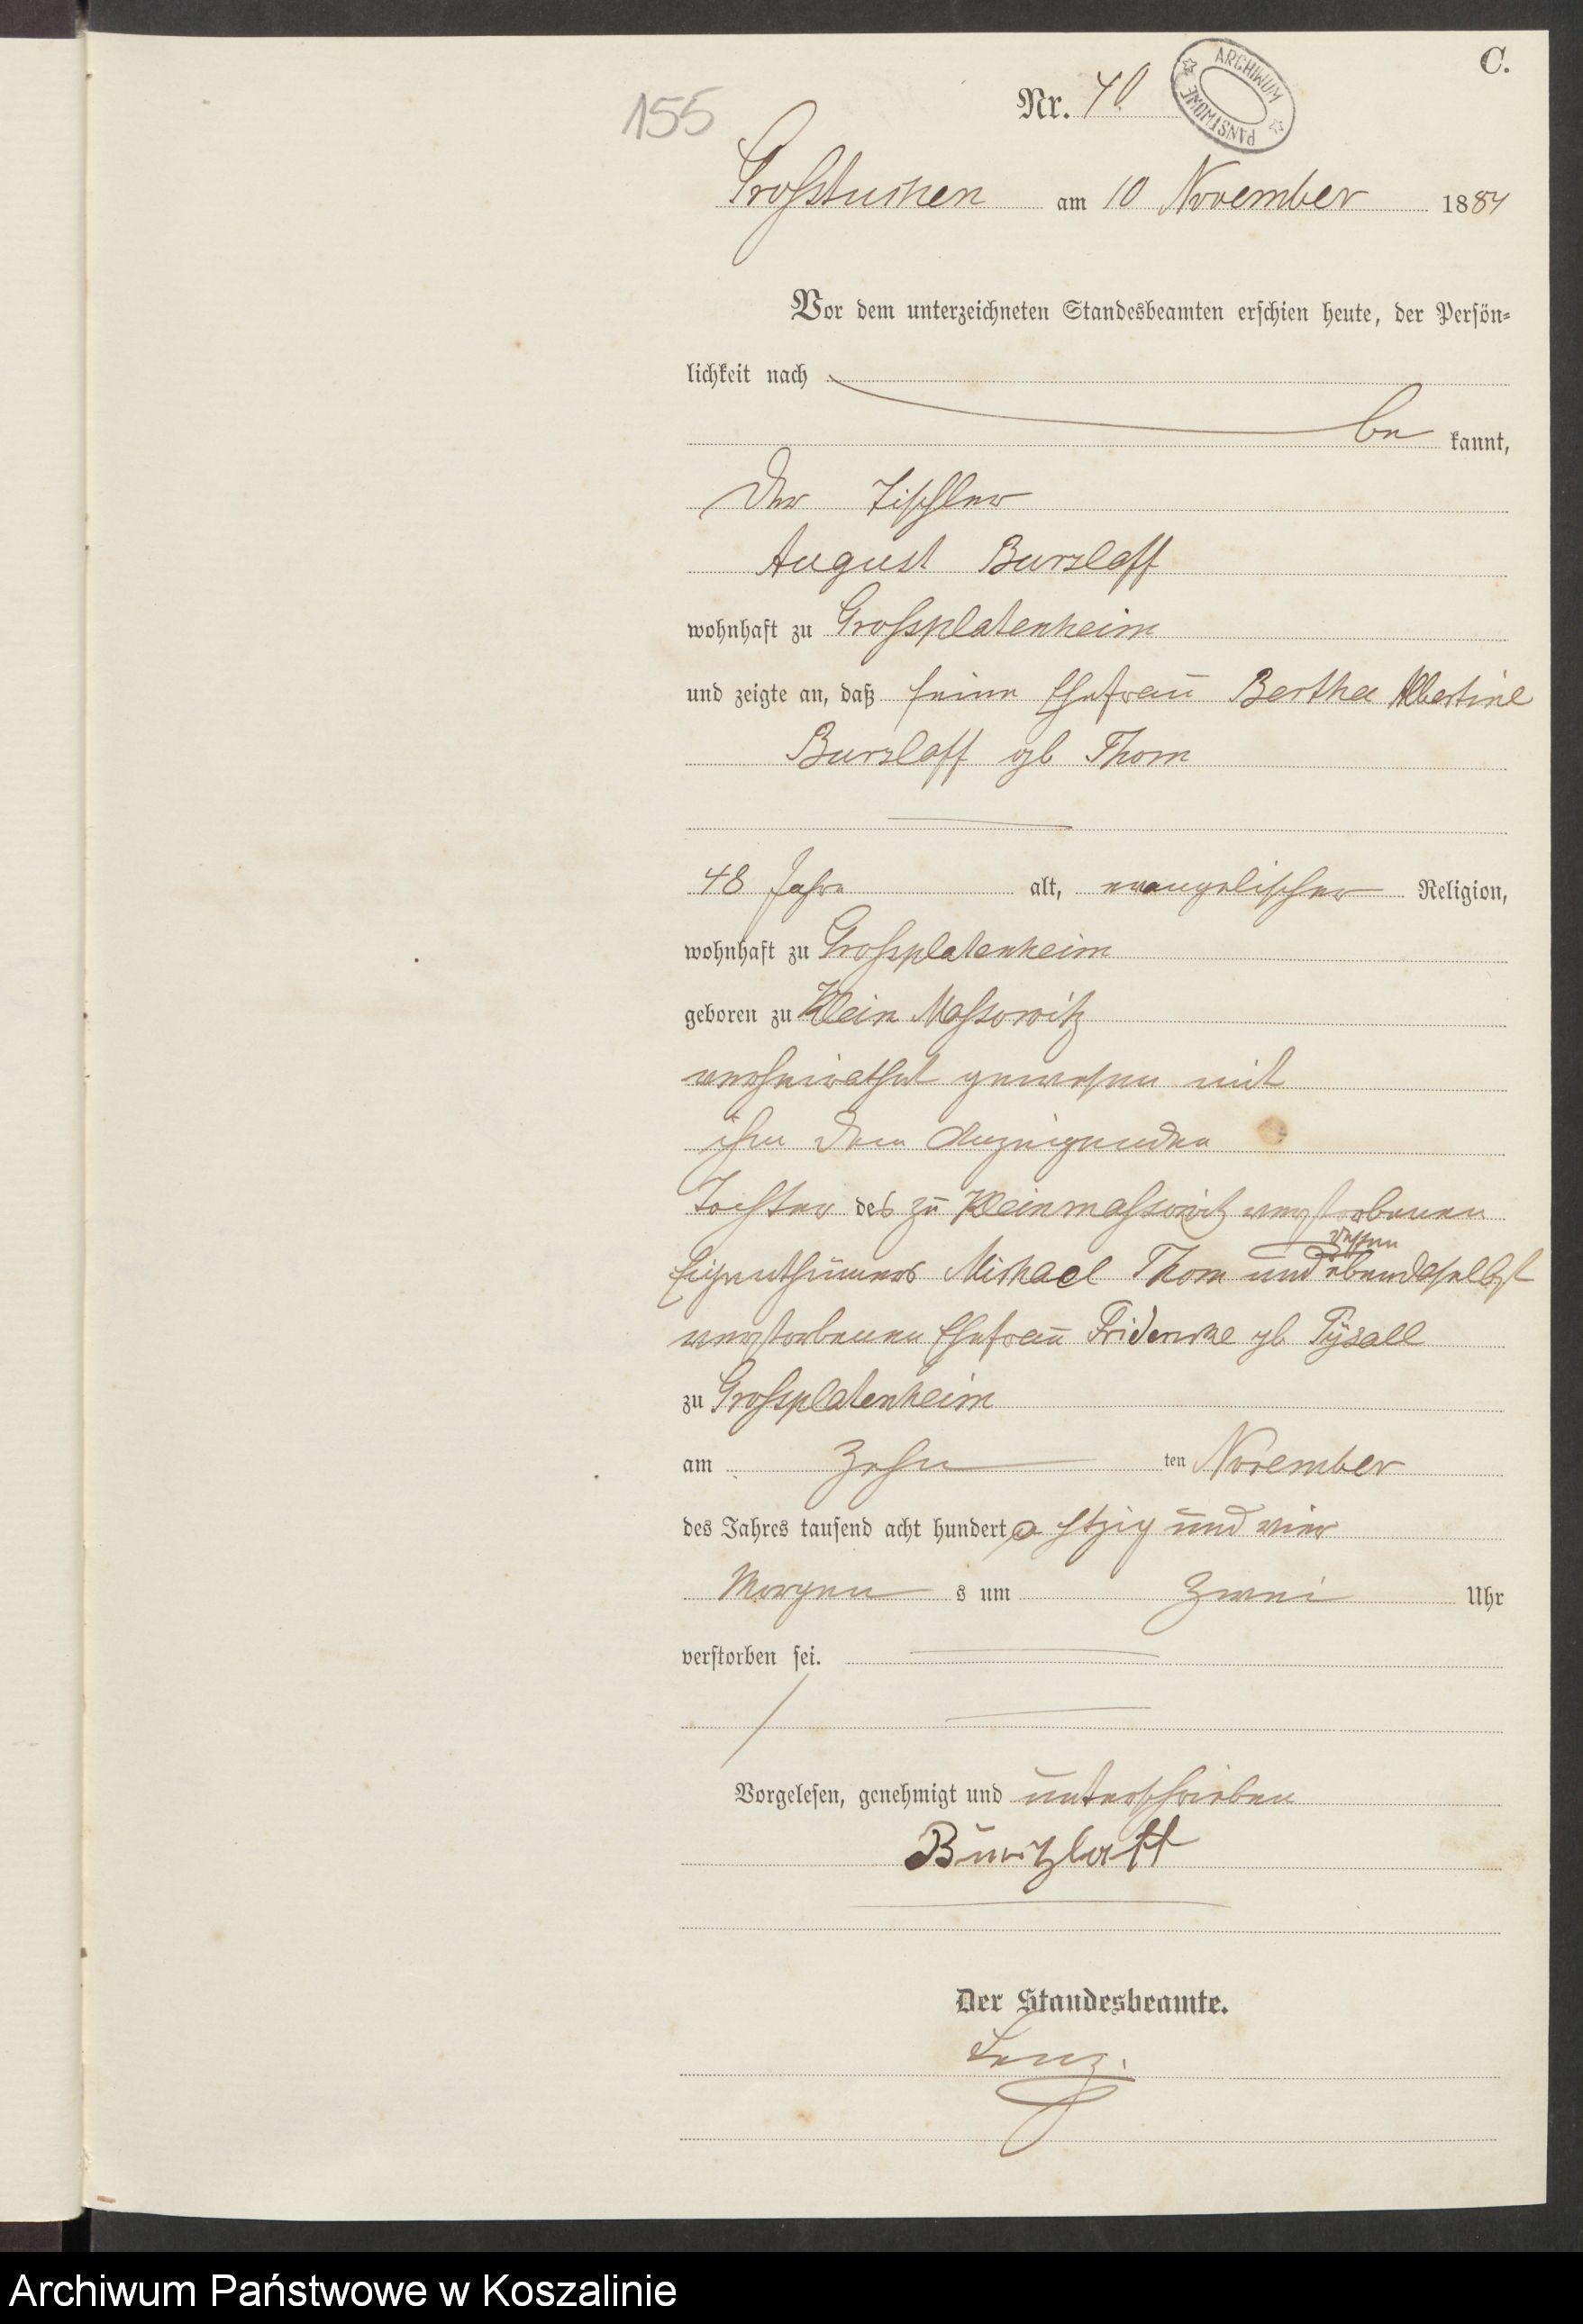 C.
155
Nr. 40.
ARCHIWUM PAŃSTWOWE
Großtuchen am 10 November 1884
Vor dem unterzeichneten Standesbeamten erschien heute, der Persön-
lichkeit nach
be kannt,
der Tischler
August Burzlaff
wohnhaft zu Grossplatenheim
und zeigte an, daß seine Ehefrau Bertha Albertine
Burzlaff gb Thom
48 Jahre alt, evangelischer Religion,
wohnhaft zu Grossplatenheim
geboren zu Klein Massowitz
verheirathet gewesen mit
ihm dem Anzeigenden
Tochter des zu Kleinmassowitz verstorbenen
dessen
Eigenthümers Michael Thom und ebendaselbst
verstorbenen Ehefrau gb
zu Grossplatenheim
am zehn ten November
des Jahres tausend acht hundert achtzig und vier
Morgen s um zwei Uhr
verstorben sei.
Vorgelesen, genehmigt und unterschrieben
Burtzlaff
Der Standesbeamte.
Lenz.
Archiwum Państwowe w Koszalinie